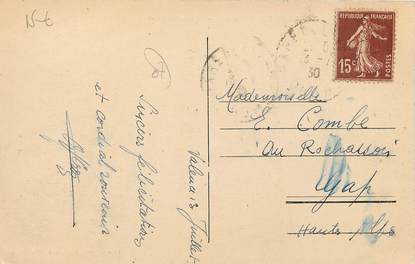 15€
Sincères félicitations
et cordial souvenir
Valence 13 Juillet
RÉPUBLIQUE FRANÇAISE
15c
POSTES
30
Mademoiselle
E. Combe
"Au Rochasson"
Gap
Hautes Alpes